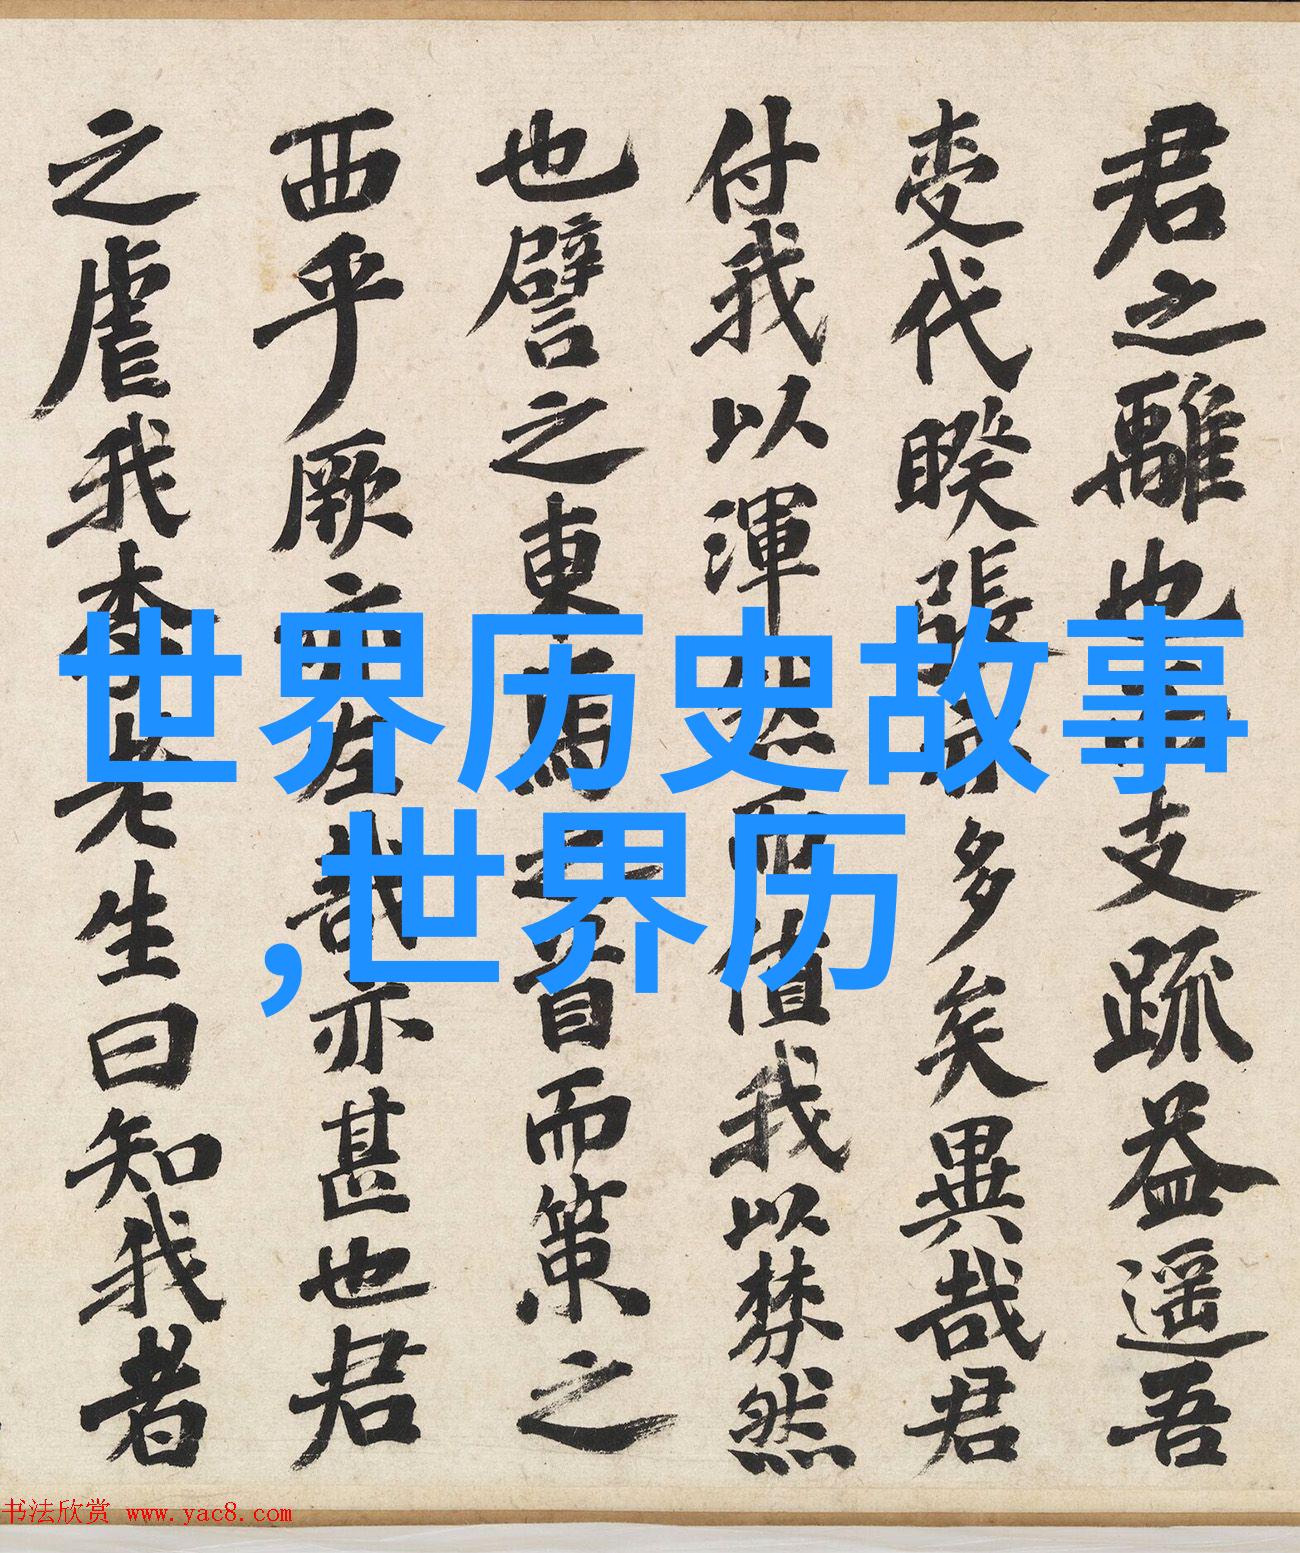 君之離也支疏益遥吾
代睽張多矣異哉君
付我以渾然而值我以棼然
也譬之東馬之首而策之
西乎厥亦左哉亦甚也君
之虐我李先生曰知我者
世界历史故事
,世界历
书法欣赏 www.yac8.com